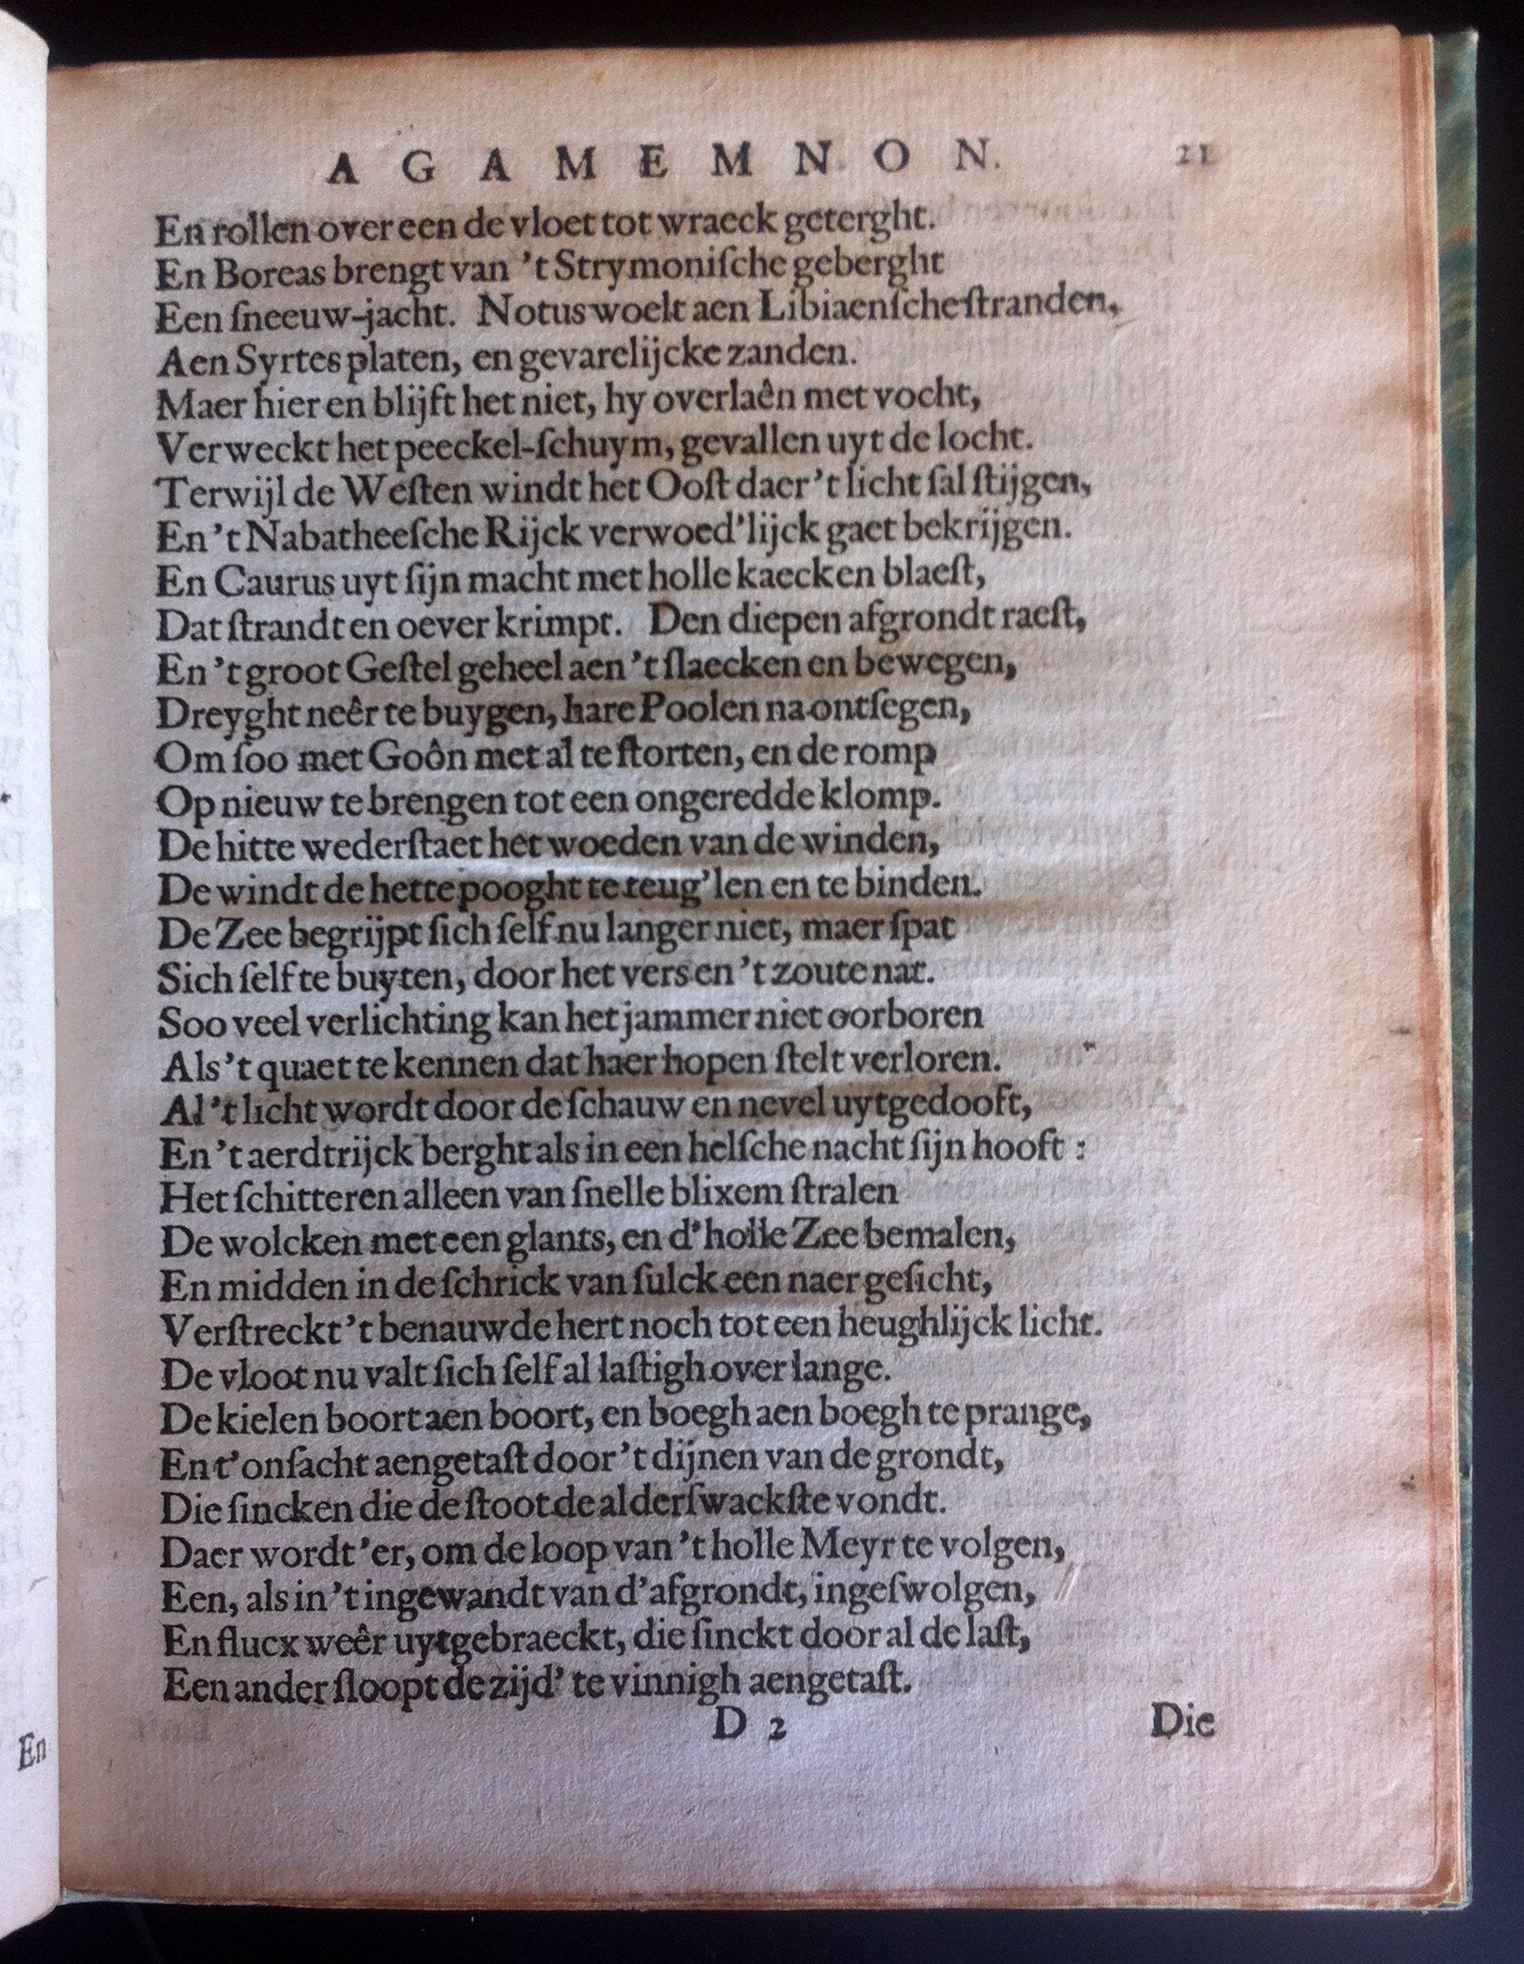 AGAMEMNON. 21
En rollen over een de vloet tot wraeck geterght.
En Boreas brengt van 't Strymoniſche geberght
Een ſneeuw-jacht. Notus woelt aen Libiaenſche ſtranden,
Aen Syrtes platen, en gevarelijcke zanden.
Maer hier en blijft het niet, hy overlaên met vocht,
Verweckt het peeckel-ſchuym, gevallen uyt de locht.
Terwijl de Weſten windt het Ooſt daer 't licht ſal ſtijgen,
En 't Nabatheeſche Rijck verwoed'lijck gaet bekrijgen.
En Caurus uyt ſijn macht met holle kaecken blaeſt,
Dat ſtrandt en oever krimpt. Den diepen afgrondt raeſt,
En 't groot Geſtel geheel aen 't ſlaecken en bewegen,
Dreyght neêr te buygen, hare Poolen na ontſegen,
Om ſoo met Goôn met al te ſtorten, en de romp
Op nieuw te brengen tot een ongeredde klomp.
De hitte wederſtaet het woeden van de winden,
De windt de hette pooght te teug'len en te binden.
De Zee begrijpt ſich ſelf nu langer niet, maer ſpat
Sich ſelf te buyten, door het vers en 't zoute nat.
Soo veel verlichting kan het jammer niet oorboren
Als 't quaet te kennen dat haer hopen ſtelt verloren.
Al 't licht wordt door de ſchauw en nevel uytgedooft,
En 't aerdtrijck berght als in een helſche nacht ſijn hooft:
Het ſchitteren alleen van ſnelle blixem ſtralen
De wolcken met een glants, en d'holle Zee bemalen,
En midden in de ſchrick van ſulck een naer geſicht,
Verſtreckt 't benauwde hert noch tot een heughlijck licht.
De vloot nu valt ſich ſelf al laſtigh over lange.
De kielen boort aen boort, en boegh aen boegh te prange,
En t'onſacht aengetaſt door 't dijnen van de grondt,
Die ſincken die de ſtoot de alderſwackſte vondt.
Daer wordt 'er, om de loop van 't holle Meyr te volgen,
Een, als in 't ingewandt van d'afgrondt, ingeſwolgen,
En flucx weêr uytgebraeckt, die ſinckt door al de laſt,
Een ander ſloopt de zijd' te vinnigh aengetaſt.
D 2 Die
En